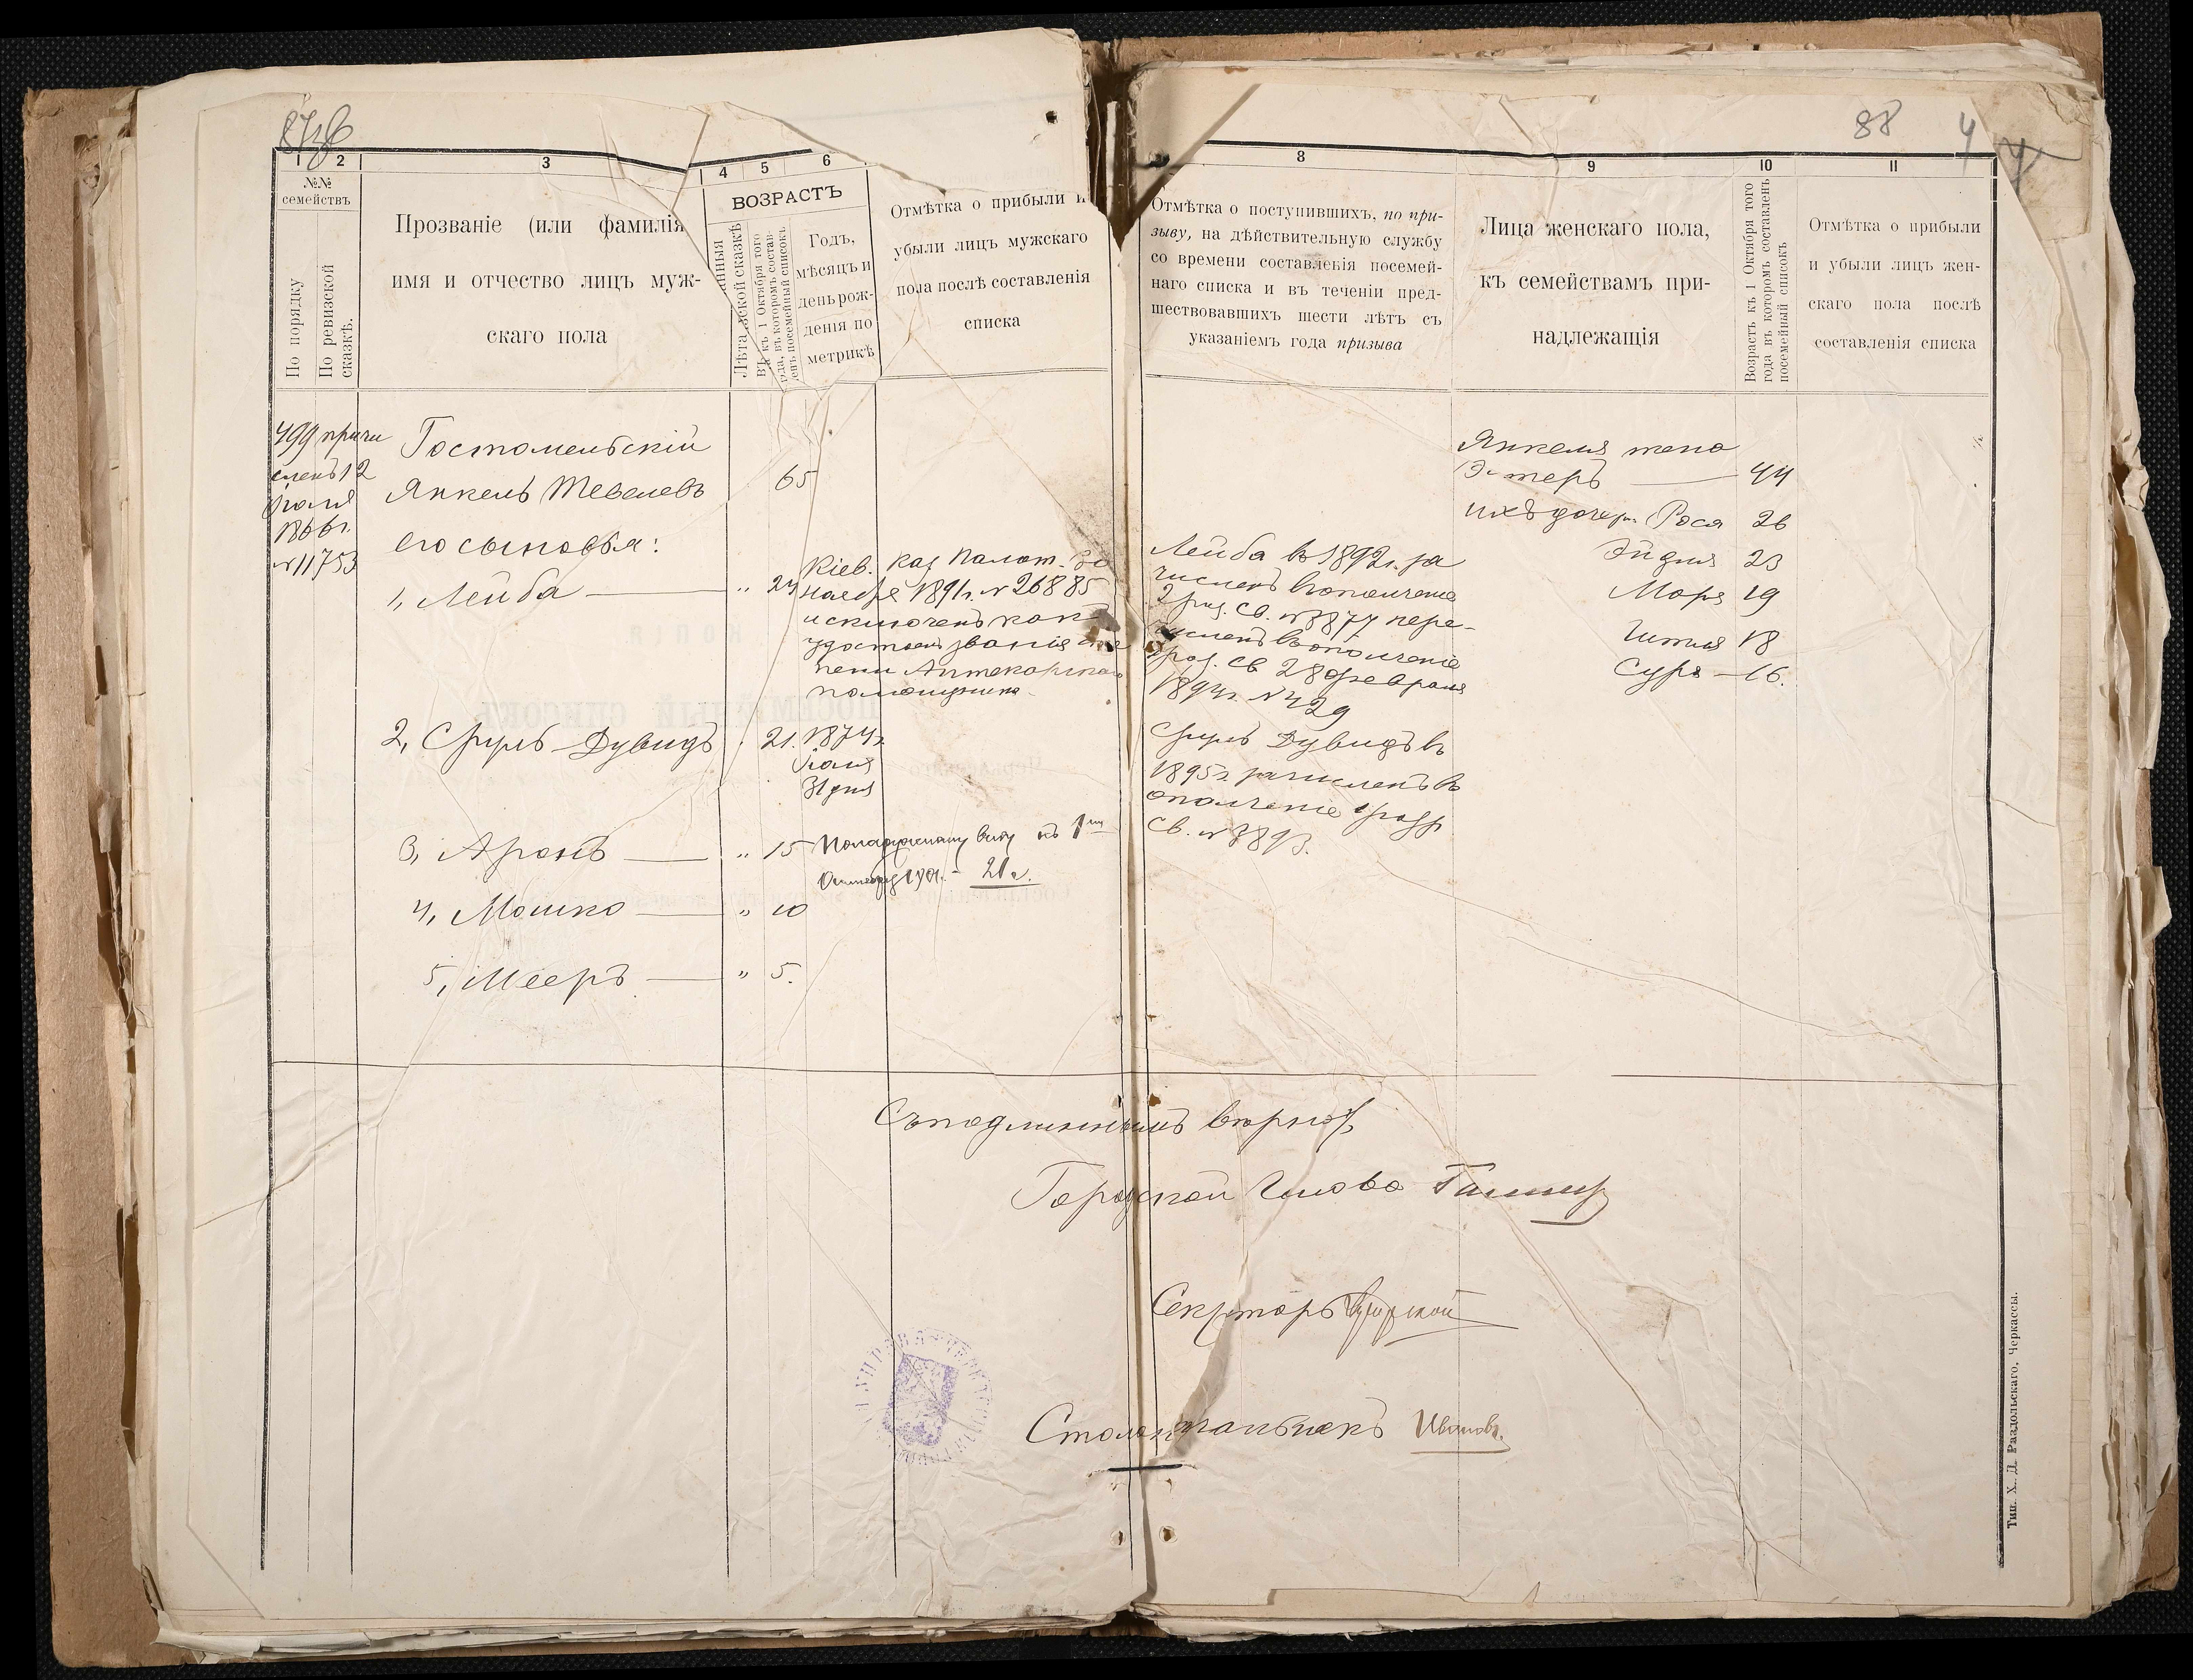 88
1
2
3
4
5
6
№№
семействъ
По порядку
По ревизской
сказкѣ.
Прозваніе (или фамилія
имя и отчество лицъ муж-
скаго пола
ВОЗРАСТЪ
Годъ,
мѣсяцъ и
день рож-
денія по
метрикѣ
Отмѣтка о прибыли и
убыли лицъ мужскаго
пола послѣ составленія
списка
499 причи
сленъ 12
Іюля
1866 г.
№ 11753
Гостомельскій
Янкель Тевелевъ
65
его сыновья:
1, Лейба
" 24
Кіев. каз Палат.
ноября 1891 г. № 26885
исключенъ какъ
удостоен званія
пени Аптекарскаго
помощника
2, Сруль-Дувидъ
21.
1874 г.
Іюля
31 дня
3, Аронъ
" 15
По наружному виду къ 1му
Октября 1901 - 21 г.
4, Мошко
" 10
5, Мееръ
" 5.
8
9
10
11
Отмѣтка о поступившихъ, по при-
зыву, на дѣйствительную службу
со времени составленія посемей-
наго списка и въ теченіи пред-
шествовавшихъ шести лѣтъ съ
указаніемъ года призыва
Лица женскаго пола,
къ семействамъ при-
надлежащія
Возрастъ къ 1 Октября того
года въ которомъ составленъ
посемейный списокъ
Отмѣтка о прибыли
и убыли лицъ жен-
скаго пола послѣ
составленія списка
Лейба въ 1892 г. за
численъ в ополченіе
2 раз. св. № 8877 пере-
численъ в ополченіе
1 раз. св 28 февраля
1894 г. № 429
Сруль Дувидъ въ
1895 г. зачисленъ въ
ополченіе 1 разр
св. № 8893.
Янкеля жена
Эстеръ 44
ихъ дочери Рося 26
Эйдля 23
Маря 19
Гитля 18
Сура 16.
Съ подлиннымъ вѣрно:
Городской Голова
Секретарь
Столоначальникъ Ивановъ.
Тип. Х. Д. Раздольскаго, Черкассы.